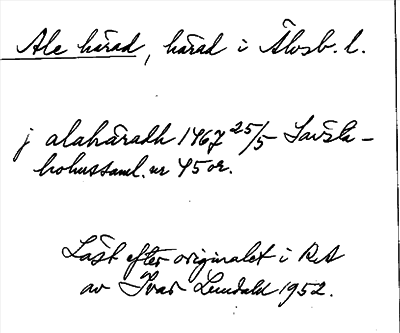 Ale härad, härad i Älvsb. l.
j alahäradh 1467 25/5
saml. nr 45 or.
Läst efter originalet i RA
av Ivar Lundahl 1952.